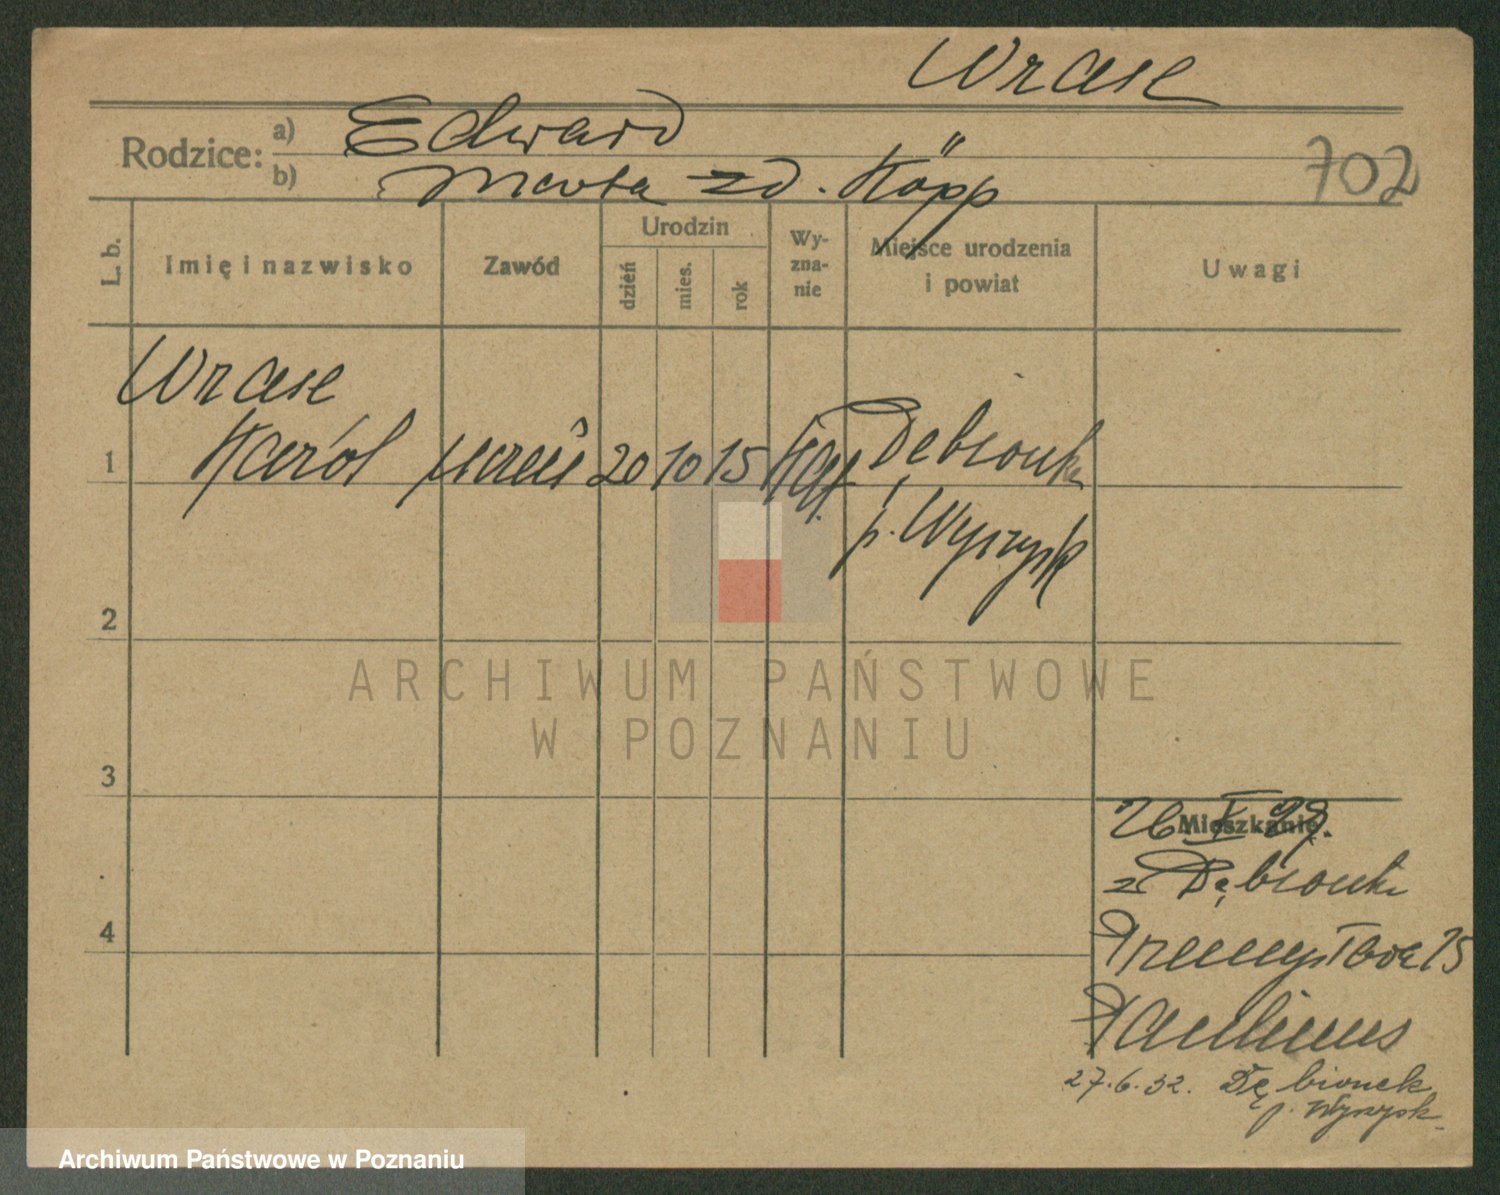 Wrase
Rodzice: a) Edward
b) Marta zd. Köpp
702
L. b.
Imię i nazwisko
Zawód
Urodzin
dzień
mies.
rok
Wy-
zna-
nie
Miejsce urodzenia
i powiat
Uwagi
Wrase
1 Karól uczeń 20 10 15 Dębionek
p. Wyrzysk
2
3
4
Mieszkanie
26. X 29.
z Dębionek
Przemysłowa 15
Paulinus
27.6.32. Dębionek
p. Wyrzysk
ARCHIWUM PAŃSTWOWE
W POZNANIU
Archiwum Państwowe w Poznaniu